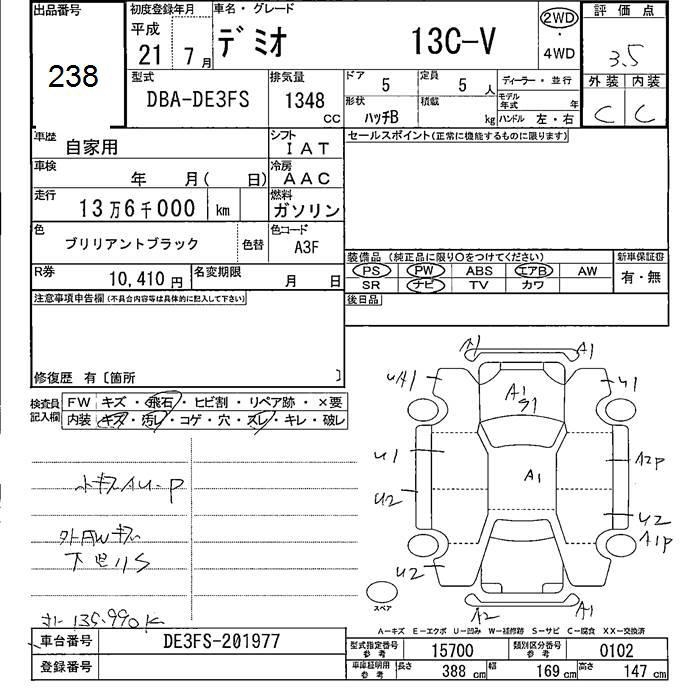 出品番号 初度登録年月 車名・グレード 2WD 評価点
238 平成 21 7月 デミオ 13C-V 4WD 3.5
型式 排気量 ドア 5 定員 5人 ディーラー・並行 外装 内装
DBA-DE3FS 1348cc 形状 ハッチB 積載 kg モデル年式 年 C C
ハンドル 左・右
車歴 自家用 シフト IAT セールスポイント(正常に機能するものに限ります)
車検 年 月( 日) 冷房 AAC
走行 13万6千000 km 燃料 ガソリン
色 ブリリアントブラック 色替 色コード A3F
装備品 (純正品に限り○をつけてください) 新車保証書
PS PW ABS エアB AW 有・無
SR ナビ TV カワ
R券 10,410円 名変期限 月 日
後日品
注意事項申告欄(不具合内容等は具体的に記入して下さい)
修復歴 有〔箇所 〕
検査員記入欄 FW キズ・飛石・ヒビ割・リペア跡・×要
内装 キズ・汚レ・コゲ・穴・スレ・キレ・破レ
A1 A1
UA1 A1 U1
S1
U1 A1 A2P
U2 U2
A1P
U2
スペア
A2 A1
135.990K
A-キズ E-エクボ U-凹み W-補修跡 S-サビ C-腐食 XX-交換済
車台番号 DE3FS-201977
登録番号
型式指定番号 参考 15700 類別区分番号 参考 0102
車庫証明用 参考 長さ 388cm 幅 169cm 高さ 147cm